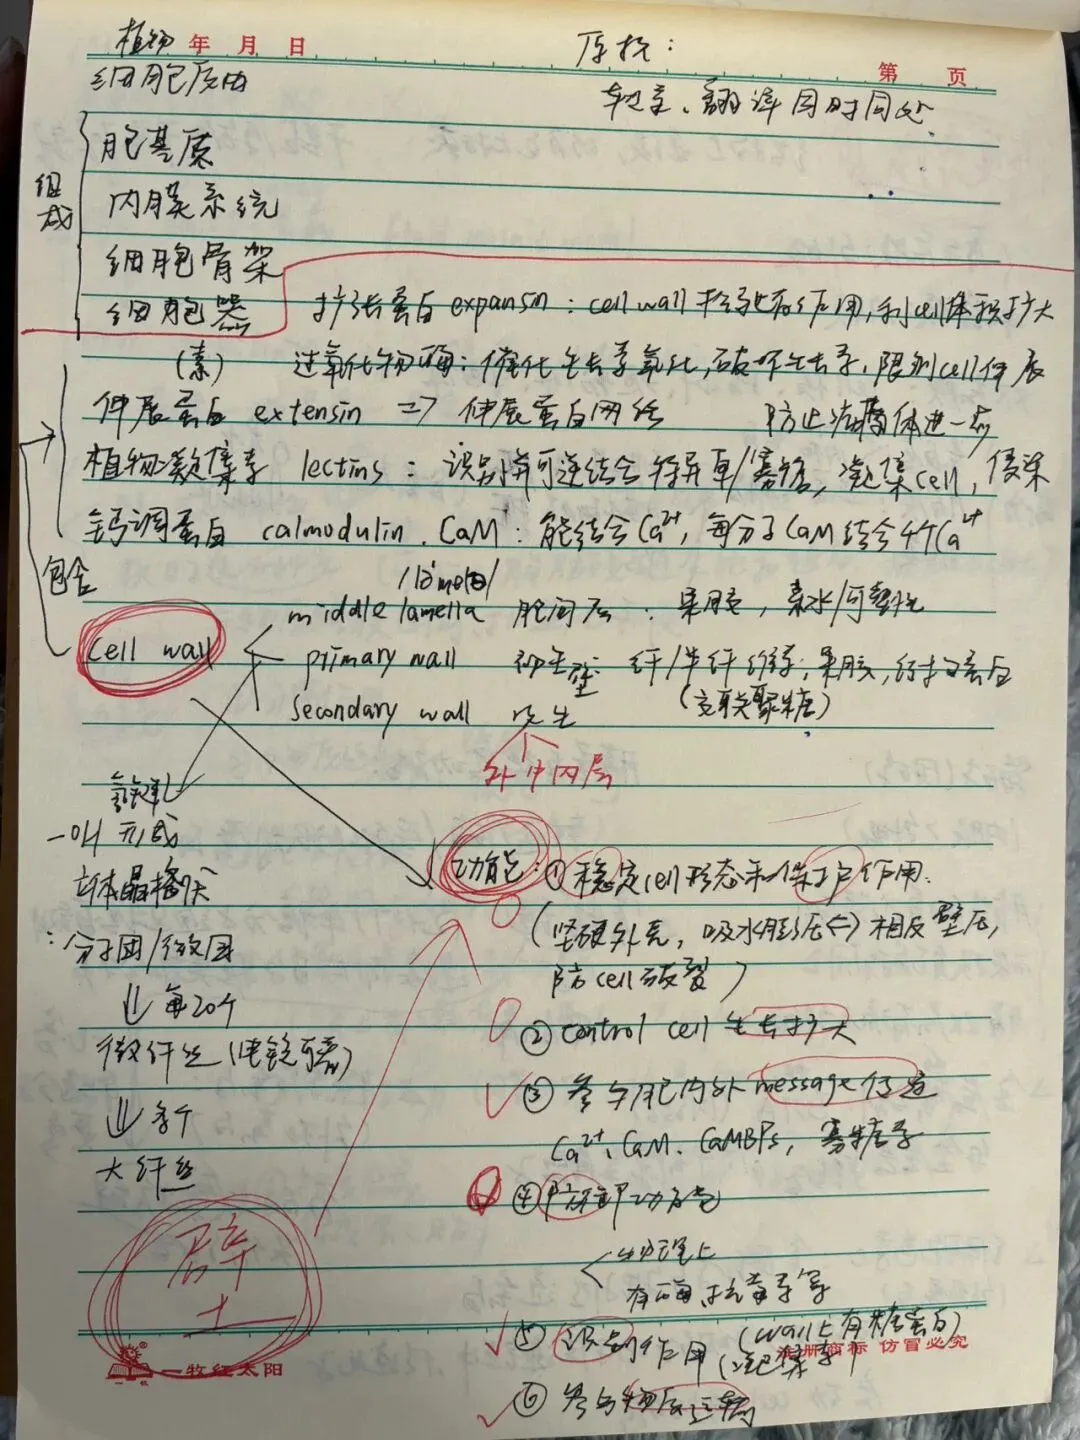 植物 年 月 日
原核：
第 页
细胞质由
转录、翻译同时同处
组成
胞基质
内膜系统
细胞骨架
细胞器
扩张蛋白 expansin：cell wall 松弛有作用，利cell体积扩大
(素) 过氧化物酶：催化生长素氧化，破坏生长素，限制cell伸展
伸展蛋白 extensin => 伸展蛋白网络 防止病菌体进一步
植物凝集素 lectins：识别并可逆结合特异单/寡糖，凝集cell，侵染
钙调蛋白 calmodulin . CaM：能结合Ca²⁺，每分子CaM结合4个Ca²⁺
包含
middle lamella 胞间层：果胶，亲水/可塑性
cell wall
primary wall 初生壁 纤/半纤维素；果胶，结构蛋白
(交联聚糖)
secondary wall 次生
外中内层
氢键
-OH 形成
立体晶格状
：分子团/微团
↓ 每20个
微纤丝(电镜可看)
↓ 多个
大纤丝
功能：① 稳定cell形态和保护作用.
(坚硬外壳，吸水膨压<>相反壁压，
防cell破裂)
② control cell 生长扩大
③ 参与胞内外message传递
Ca²⁺、CaM、CaMBPs，寡糖素
④ 防御功能
物理上
有酶、抗毒素等
壁
⑤ 识别作用 (wall上有糖蛋白)
(凝集素)
⑥ 参与物质运输
一牧红太阳
注册商标 仿冒必究